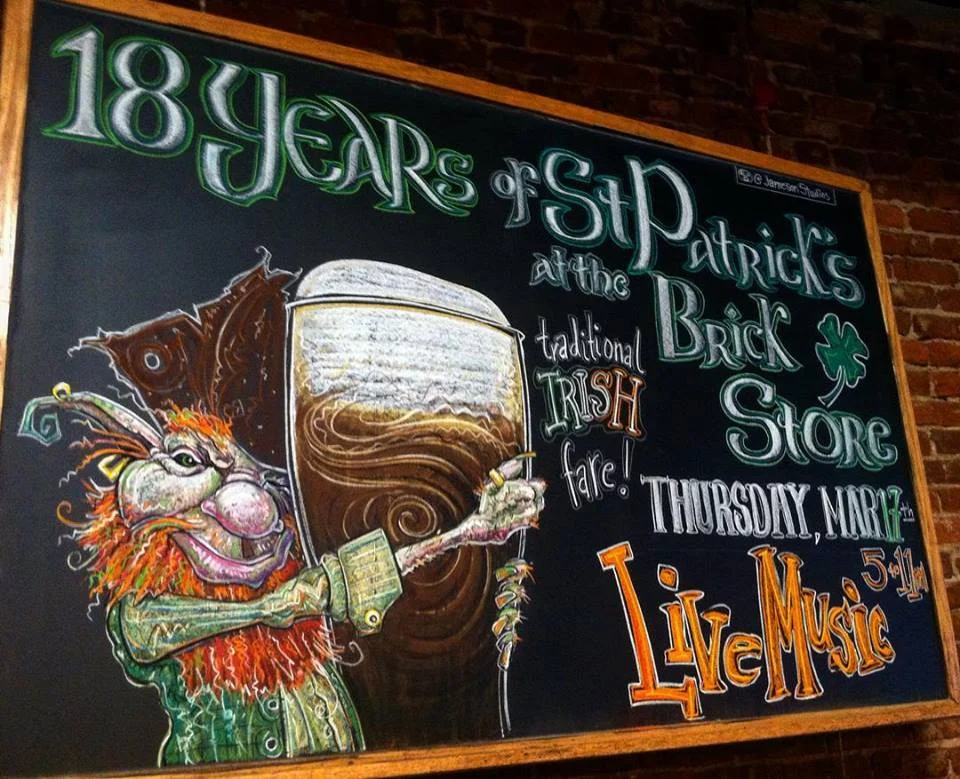 18 YEARS of St Patrick's
at the Brick
Store
© Jameson Studios
traditional
IRISH
fare!
THURSDAY, MAR 17th
5 to 11
Live Music